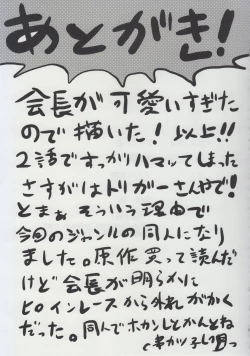 あとがき！
会長が可愛いすぎた
ので描いた！以上!!
2話ですっかりハマッてしまった
さすがはトリガーさんやで！
とまぁそういう理由で
今回のジャンルの同人になり
ました。原作買って読んだ
けど会長が明らかに
ヒロインレースから外れがかく
だった。同人でホカンしとかんとね